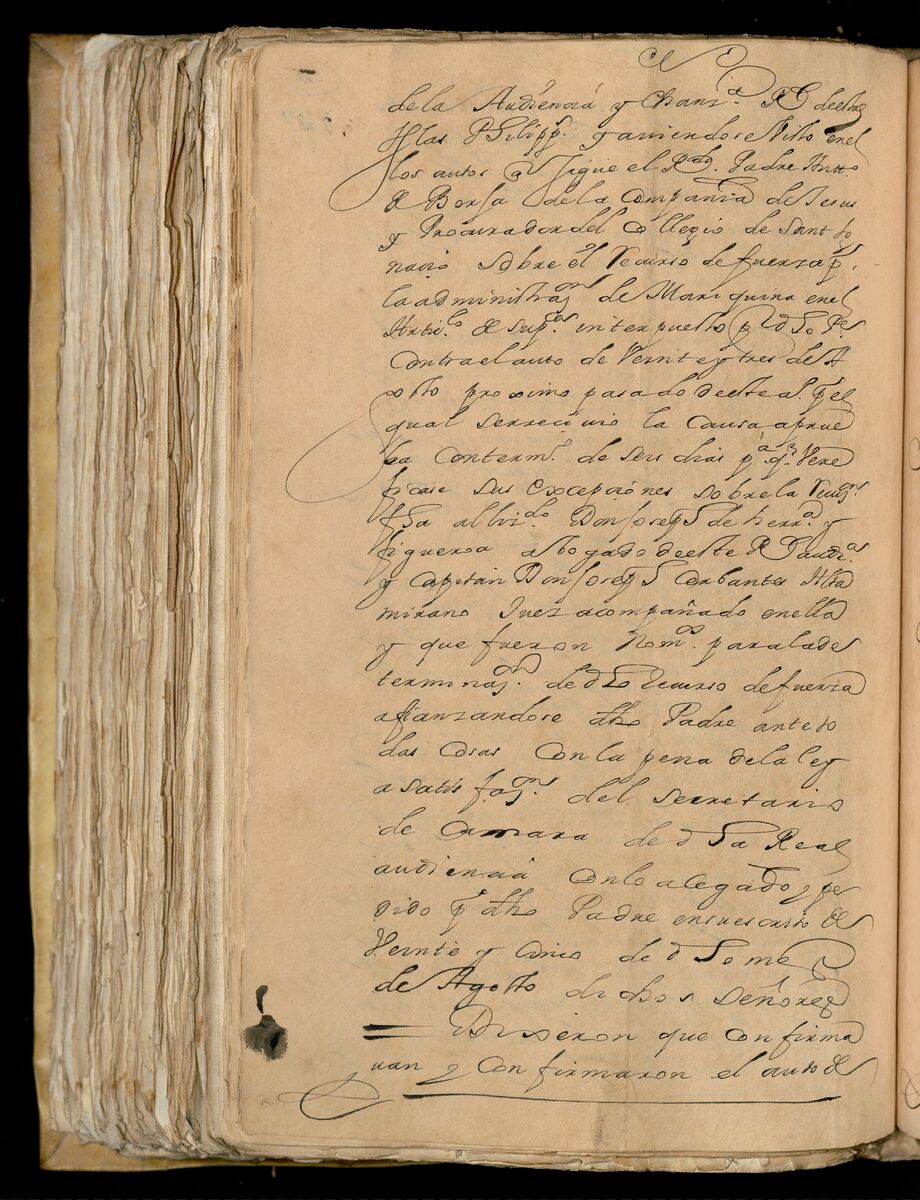 de la Audiencia y Chanz.a Rl deestas
Yslas Philipp.s y auiendose Visto en el
los autos q Sigue el R.do Padre Antt.o
de Borja de la Compañia de Jesus
y Procurador del Collegio de Sant Yg
nacio sobre el Recurso de fuerza p.r
la administraz.on de Mariquina en el
Artic.lo de sup.on interpuesto p.r d ho P.e
Contra el auto de Veinte y tres de A
gosto proximo pasado deeste a.o p.r el
qual serreciuio la Causa aprue
ba Con term.o de seis dias p.a q.e Vere
ficase sus excepciones sobre la Recuz.on
fha al liz.do Don Joseph de herr.a y
figueroa abogado deeste Rl audi.a
y Capitan Don Joseph Cerbantes Alta
mirano Juez acompañado en ella
y que fueron Nom.dos para la de
terminaz.on de d ho Recurso de fuerza
afianzandose dho Padre ante to
das Cosas Con la pena de la ley
a satisfaz.on del Secretario
de Camara de d ha Real
audiencia Con lo alegado y pe
dido p.r dho Padre en su escrito de
Veinte y Cinco de d ho mes
de Agosto dichos Señores
= Dixeron que Confirma
uan y Confirmaron el auto de